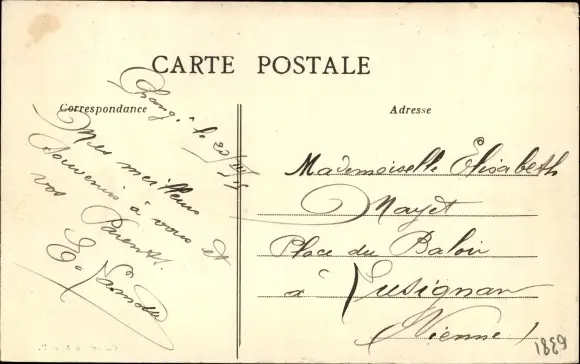 CARTE POSTALE
Correspondance
Adresse
le 20
Mes meilleurs
souvenirs à vous et
vos Parents.
Mademoiselle Elisabeth
Mayet
Place du Baloir
à Lusignan
Vienne
1889